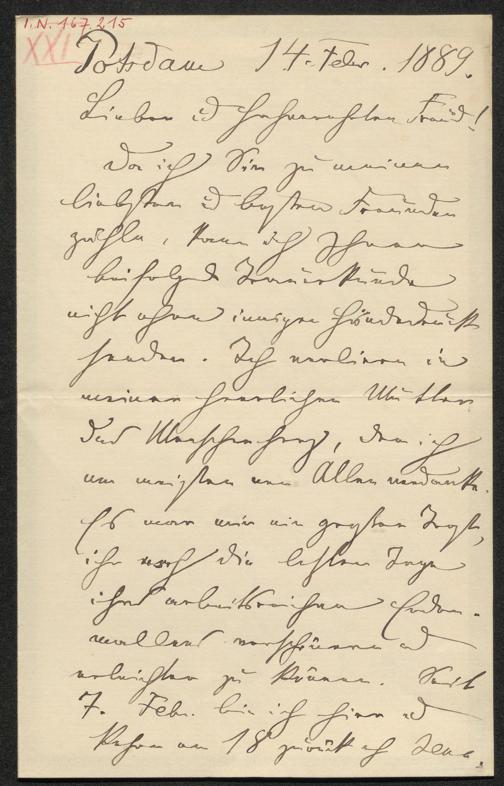 I.N. 167.215
XXI
Potsdam 14. Febr. 1889.
Lieber u hochverehrter Freund!
Da ich Sie zu meinen
liebsten u besten Freunden
zähle, kann ich Ihnen
beifolgende Trauerkunde
nicht ohne innigen Händedruck
senden. Ich verliere in
meiner herrlichen Mutter
das Menschenherz, dem ich
am meisten von Allen verdanke.
Es war mir ein großer Trost,
ihr noch die letzten Tage
ihres arbeitsreichen Erden-
wallens verschönern u
erleichtern zu können. Seit
7. Febr. bin ich hier u
kehre am 18 zurück nach Jena.